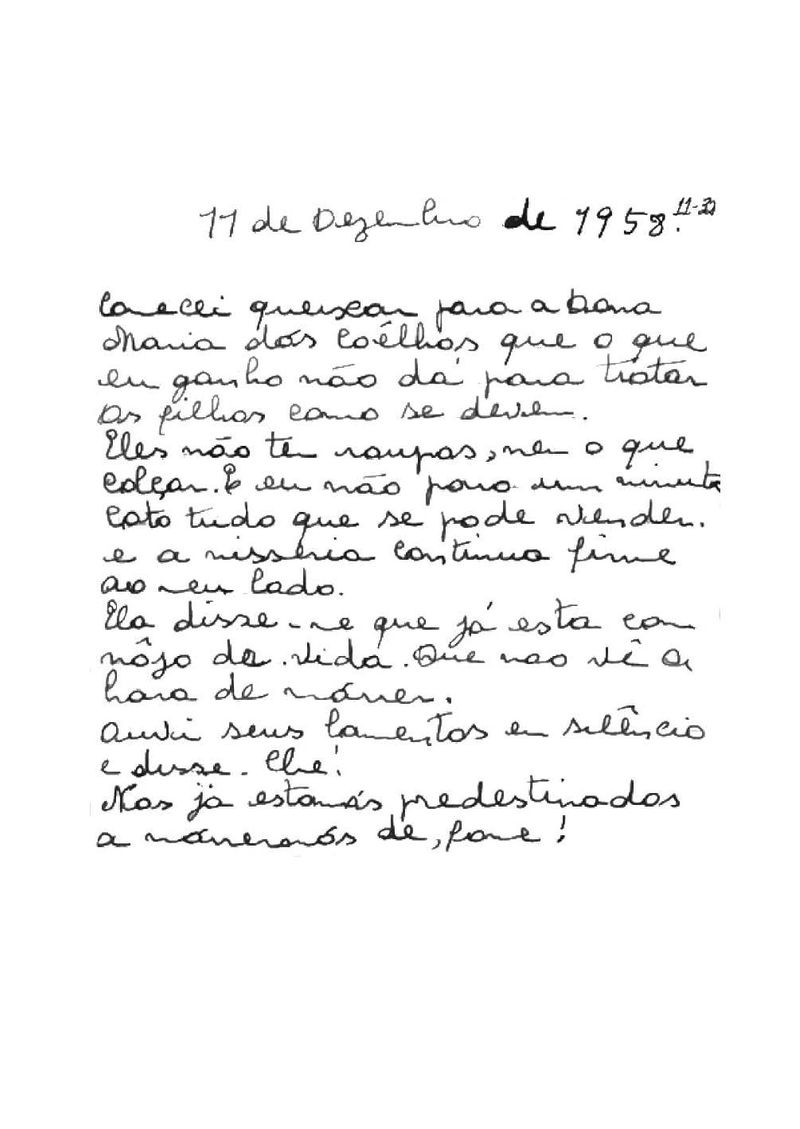 11 de Dezembro de 1958. 11-30
Comecei queixar para a Dona
Maria dós Coêlhos que o que
eu ganho não dá para tratar
os filhos como se devem.
Eles não tem roupas, nem o que
calçar. E eu não paro um minuto
Cato tudo que se pode vender.
e a misséria continua firme
ao meu lado.
Ela disse-me que já esta com
nôjo da vida. Que nao vê a
hora de mórrer.
Ouvi seus lamentos em silêncio
e disse-lhe!
Nos já estamós predestinados
a mórrermós de, fome!